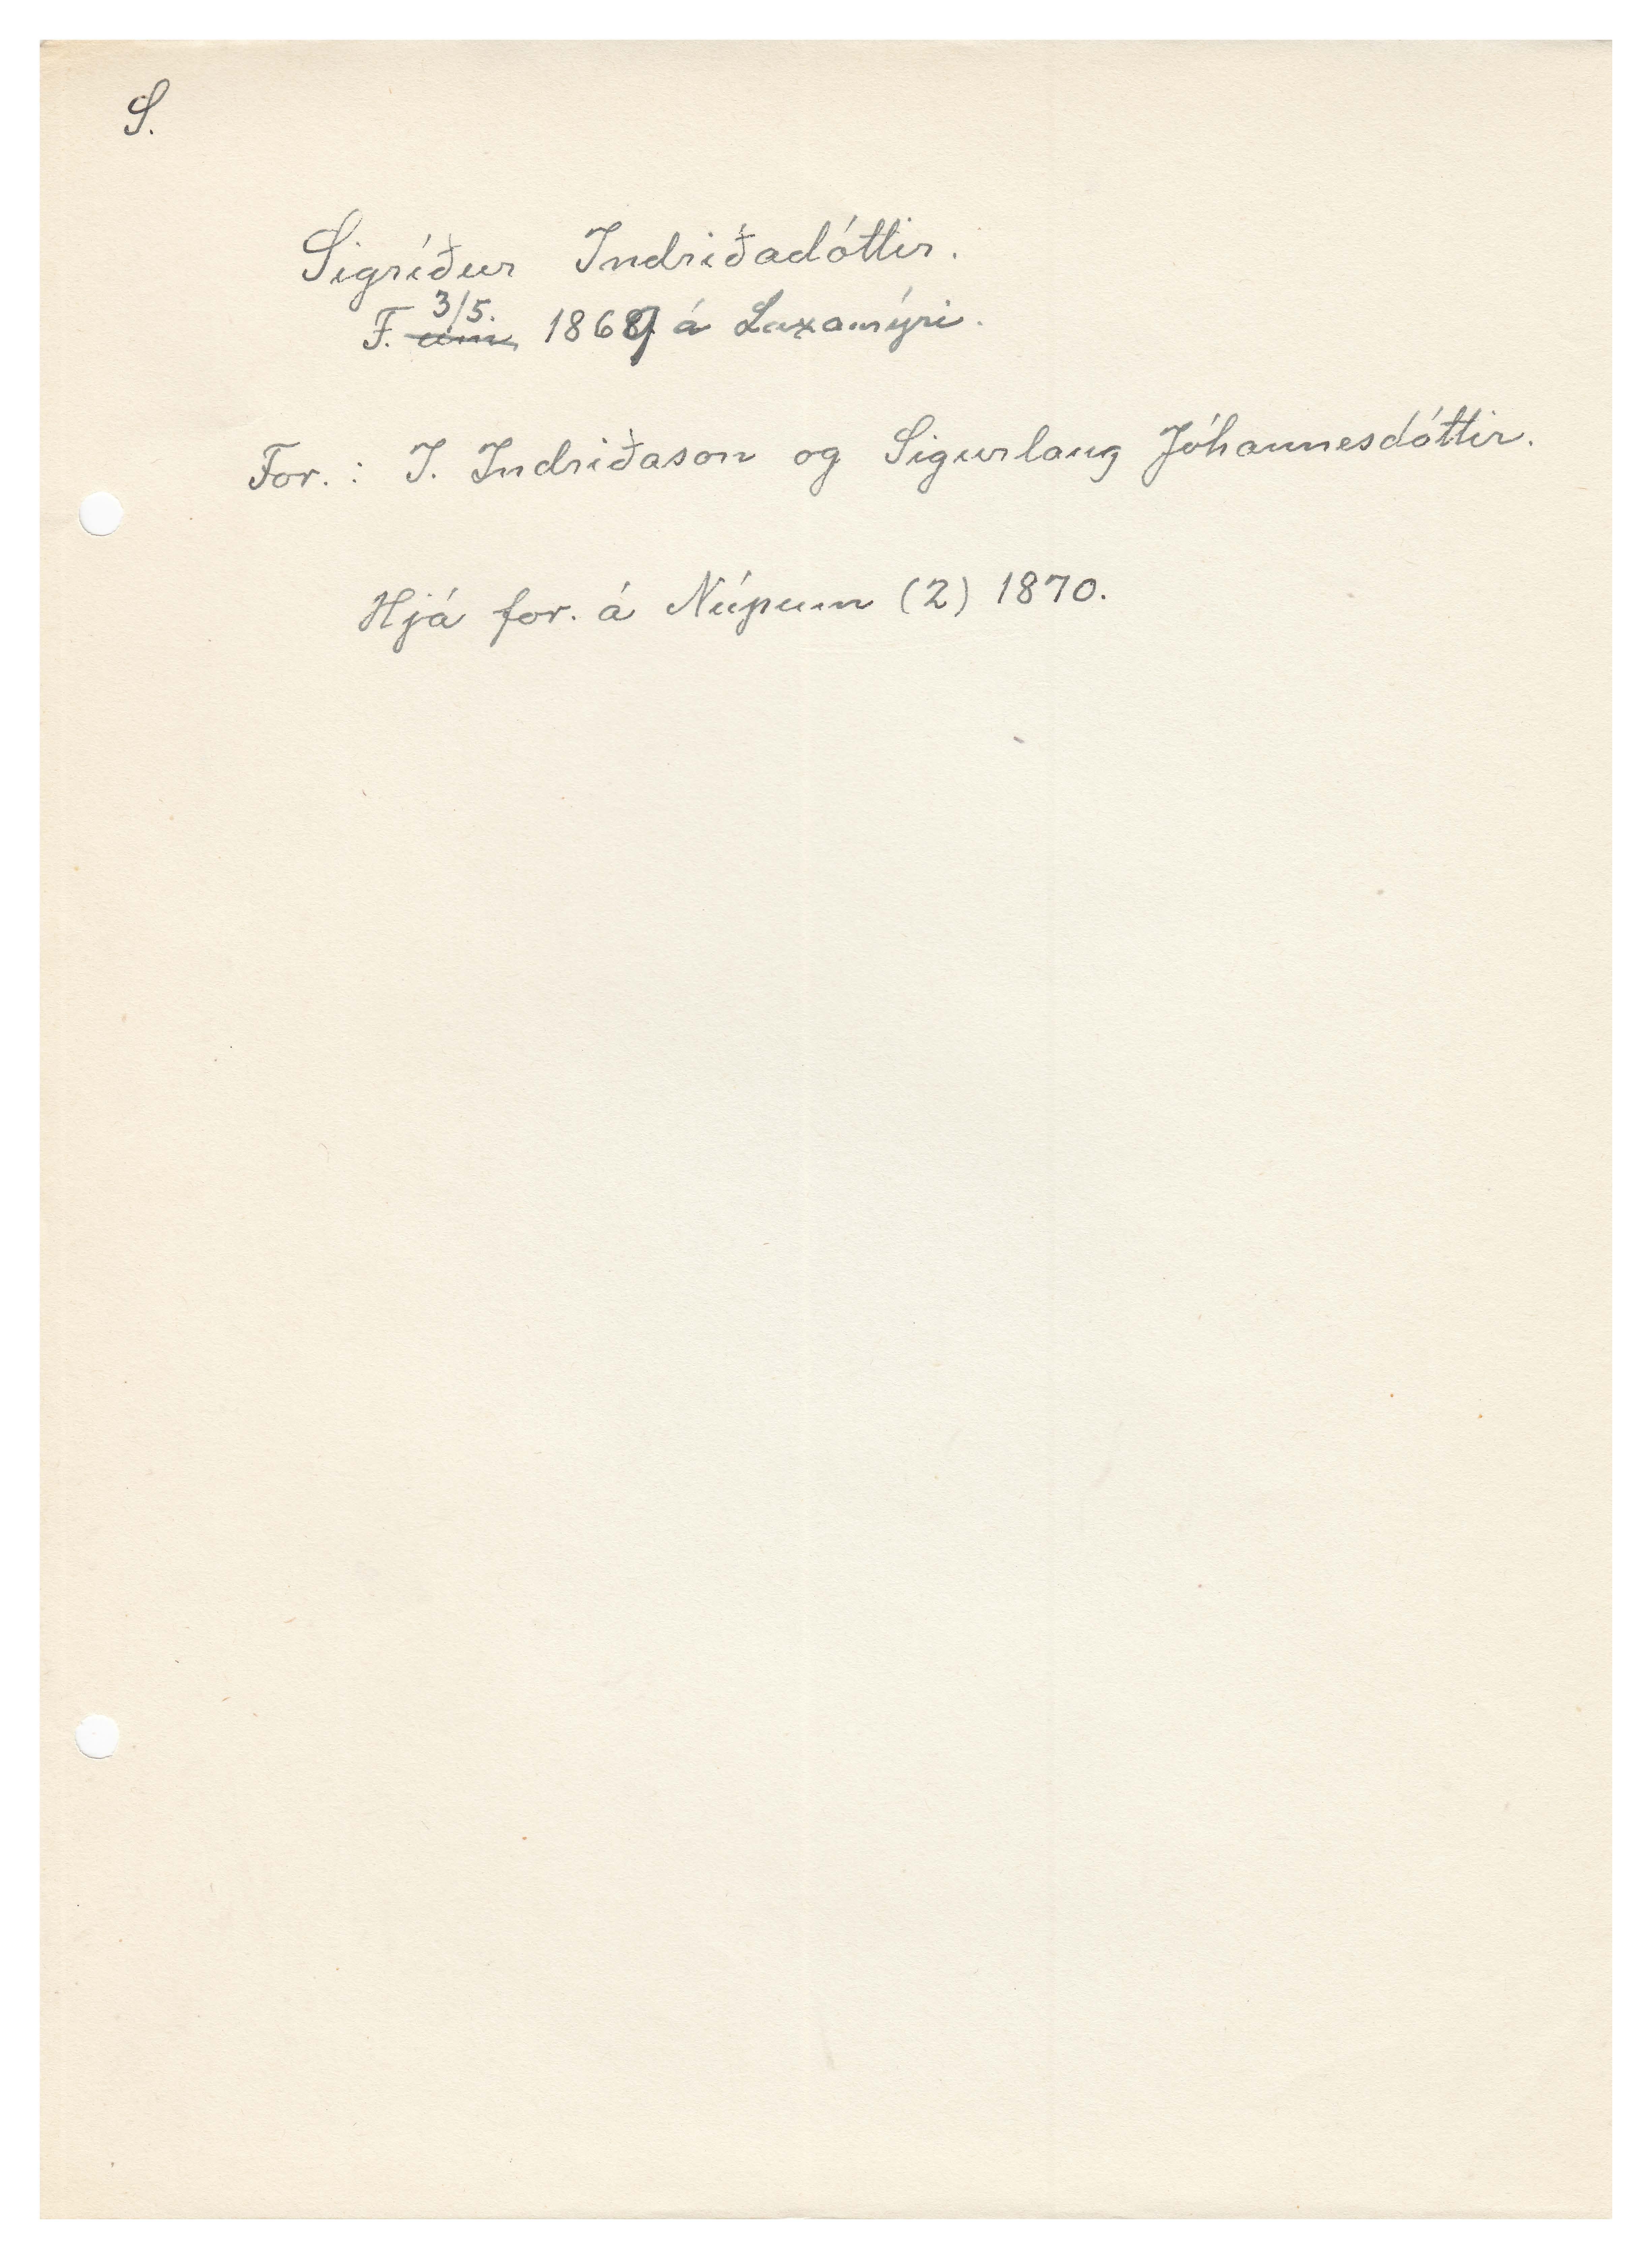 S.
Sigríður Indriðadóttir.
3/5.
F. um 1869 á Laxamýri.
For.: I. Indriðason og Sigurlaug Jóhannesdóttir.
Hjá for. á Núpum (2) 1870.